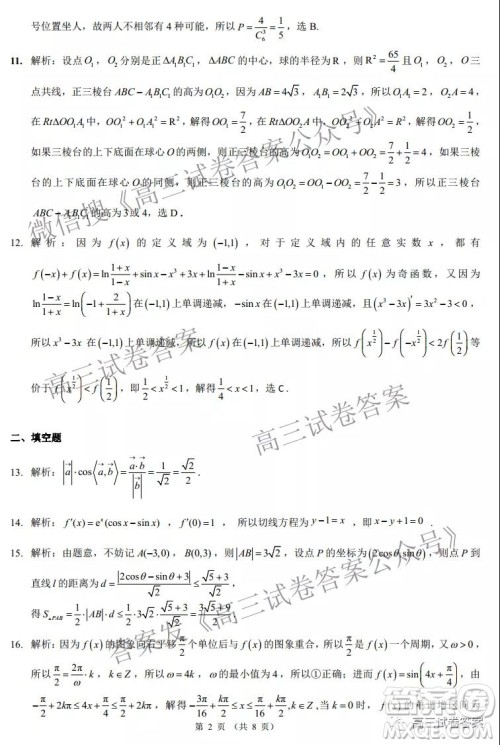 号位置坐人，故两人不相邻有 4 种可能，所以 P = 4/C₆³ = 1/5，选 B.
11. 解析：设点 O₁，O₂ 分别是正 ΔA₁B₁C₁，ΔABC 的中心，球的半径为 R，则 R² = 65/4 且 O₁，O，O₂ 三
点共线，正三棱台 ABC − A₁B₁C₁ 的高为 O₁O₂，因为 AB = 4√3，A₁B₁ = 2√3，所以 O₁A₁ = 2，O₂A = 4，
在 RtΔOO₁A₁ 中，OO₁² + O₁A₁² = R²，解得 OO₁ = 7/2，在 RtΔOO₂A 中，OO₂² + O₂A² = R²，解得 OO₂ = 1/2，
如果三棱台的上下底面在球心 O 的两侧，则正三棱台的高为 O₁O₂ = OO₁ + OO₂ = 7/2 + 1/2 = 4，如果三棱
台的上下底面在球心 O 的同侧，则正三棱台的高为 O₁O₂ = OO₁ − OO₂ = 7/2 − 1/2 = 3，所以正三棱台
ABC − A₁B₁C₁ 的高为 3 或 4，选 D.
12. 解析：因为 f(x) 的定义域为 (-1,1)，对于定义域内的任意实数 x，都有
f(-x) + f(x) = ln (1+x)/(1−x) + sin x − x³ + 3x + ln (1−x)/(1+x) − sin x + x³ − 3x = 0，所以 f(x) 为奇函数，又因为
ln (1−x)/(1+x) = ln(−1 + 2/(1+x)) 在 (-1,1) 上单调递减，−sin x 在 (-1,1) 上单调递减，(x³ − 3x)′ = 3x² − 3 < 0，
所以 x³ − 3x 在 (-1,1) 上单调递减，所以 f(x) 在 (-1,1) 上单调递减，所以 f(x^(1/2)) − f(−x^(1/2)) < 2f(1/2) 等
价于 f(x^(1/2)) < f(1/2)，即 1/2 < x^(1/2) < 1，解得 1/4 < x < 1，选 C.
二、填空题
13. 解析：|a|·cos⟨a,b⟩ = a·b/|b| = 1/√2 = √2/2.
14. 解析：f′(x) = eˣ(cos x − sin x)，f′(0) = 1，所以切线方程为 y − 1 = x，即
15. 解析：由题意，不妨记 A(-3,0)，B(0,3)，则 |AB| = 3√2，设点 P 的坐标为 (2cosθ, sinθ)，则点 P 到
直线 l 的距离为 d = |2cosθ − sinθ + 3|/√2 ≤ (√5+3)/√2，
得 S△PAB = 1/2·|AB|·d ≤ 1/2·3√2·(√5+3)/√2 = (3√5+9)/2.
16. 解析：因为 f(x) 的图象向右平移 π/2 个单位后与 f(x) 的图象重合，所以 π/2 是 f(x) 的一个周期，又 ω > 0，
所以 π/2 = 2π/ω·k，k∈Z，所以 ω = 4k，k∈Z，ω 的最小值为 4，所以①正确；进而 f(x) = sin(4x + π/4)，由
−π/2 + 2kπ ≤ 4x + π/4 ≤ π/2 + 2kπ，解得 −3π/16 + kπ/2 ≤ x ≤ π/16 + kπ/2，k∈Z，所以 f(x) 的单调递增区间为
第 2 页（共 8 页）
微信搜《高三试卷答案公众号》
高三试卷答案
高三试卷答案
答案发《高三试卷答案公众号》
高三试卷答案